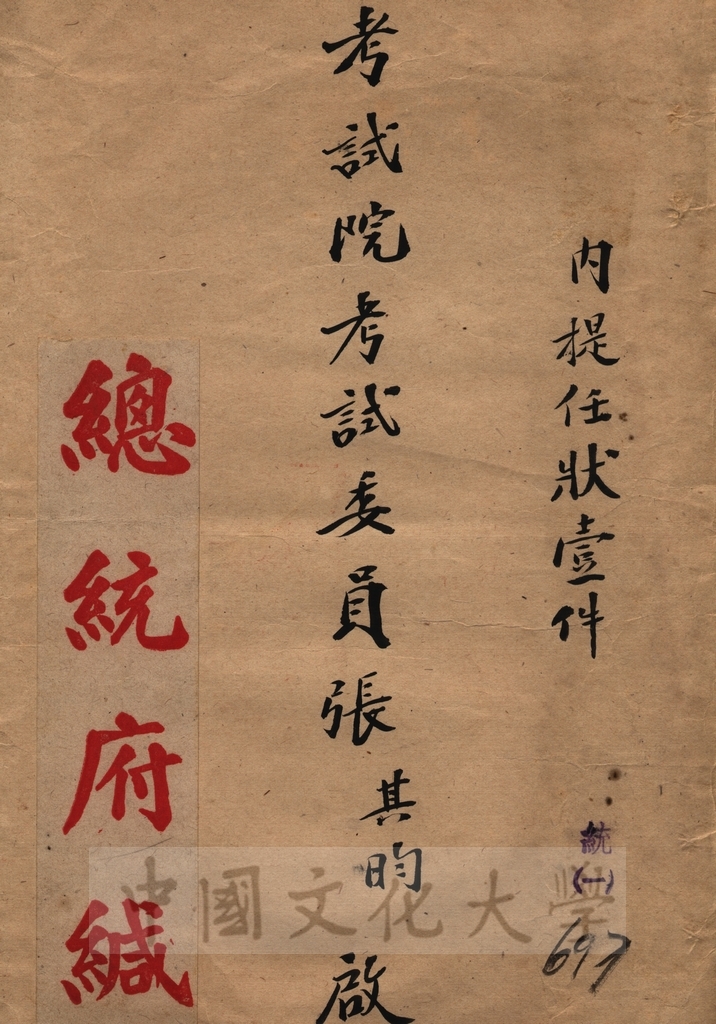 內提任狀壹件
考試院考試委員張其昀啟
總統府緘
統(一)
697
中國文化大學